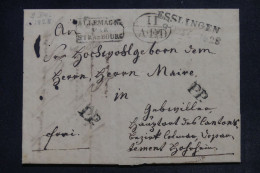 ALLEMAGNE
PAR
STRASBOURG
II
A.ED
ESSLINGEN
28
An
Hochwohlgeboren dem
Herrn Herrn Maire
in
P.P.
Gebwiller
Hauptort des Cantons
Bezirk Colmar Depar-
tement Hohrhein
frei.
P.P.